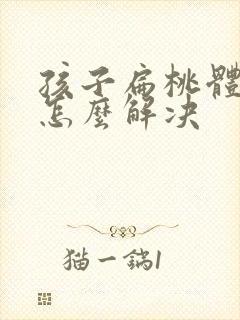 孩子扁桃體
怎麼解决
猫一鍴1